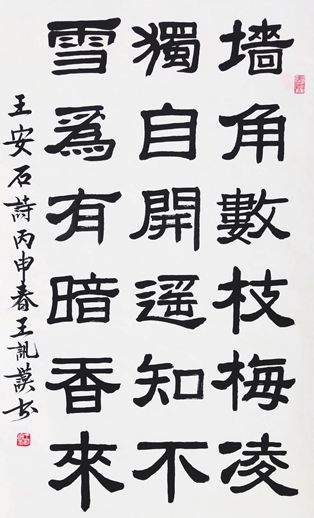 墻角數枝梅凌
獨自開遥知不
雪爲有暗香來
王安石詩丙申春王訊謨书